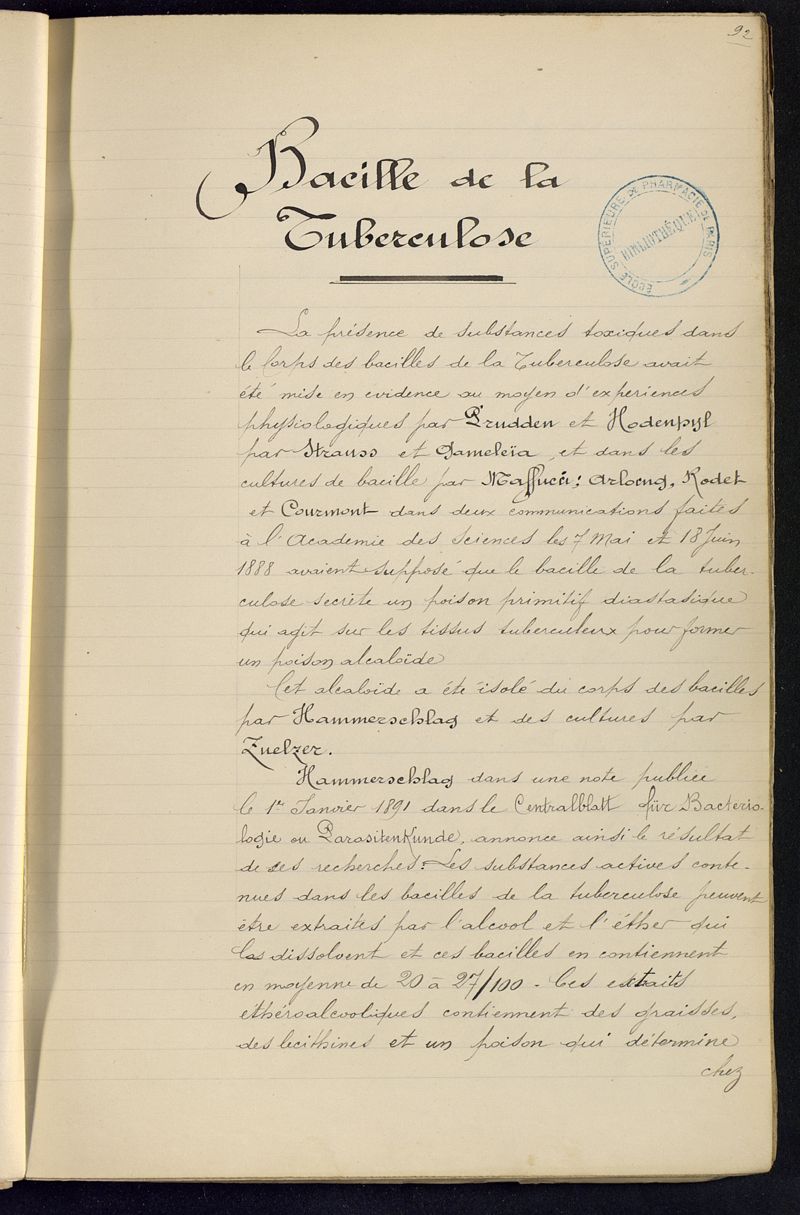 92
Bacille de la
Tuberculose
ÉCOLE SUPÉRIEURE DE PHARMACIE DE PARIS
BIBLIOTHÈQUE
La présence de substances toxiques dans
le Corps des bacilles de la Tuberculose avait
été mise en evidence au moyen d'experiences
physiologiques par Prudden et Hodenpyl
par Strauss et Gameleïa, et dans les
cultures de bacille par Maffucci; Arloing, Rodet
et Courmont dans deux communications faites
à l'Academie des Sciences les 7 Mai et 18 Juin
1888 avaient supposé que le bacille de la tuber-
culose secrète un poison primitif diastasique
qui agit sur les tissus tuberculeux pour former
un poison alcaloïde
Cet alcaloïde a été isolé du corps des bacilles
par Hammerschlag et des cultures par
Zuelzer.
Hammerschlag dans une note publiée
le 1er Janvier 1891 dans le Centralblatt für Bacterio-
logie ou Parasitenkunde, annonce ainsi le résultat
de ses recherches: Les substances actives conte-
nues dans les bacilles de la tuberculose peuvent
être extraites par l'alcool et l'éther qui
les dissolvent et ces bacilles en contiennent
en moyenne de 20 à 27/100 - Ces extraits
éthéroalcooliques contiennent des graisses,
des lecithines et un poison qui détermine
chez